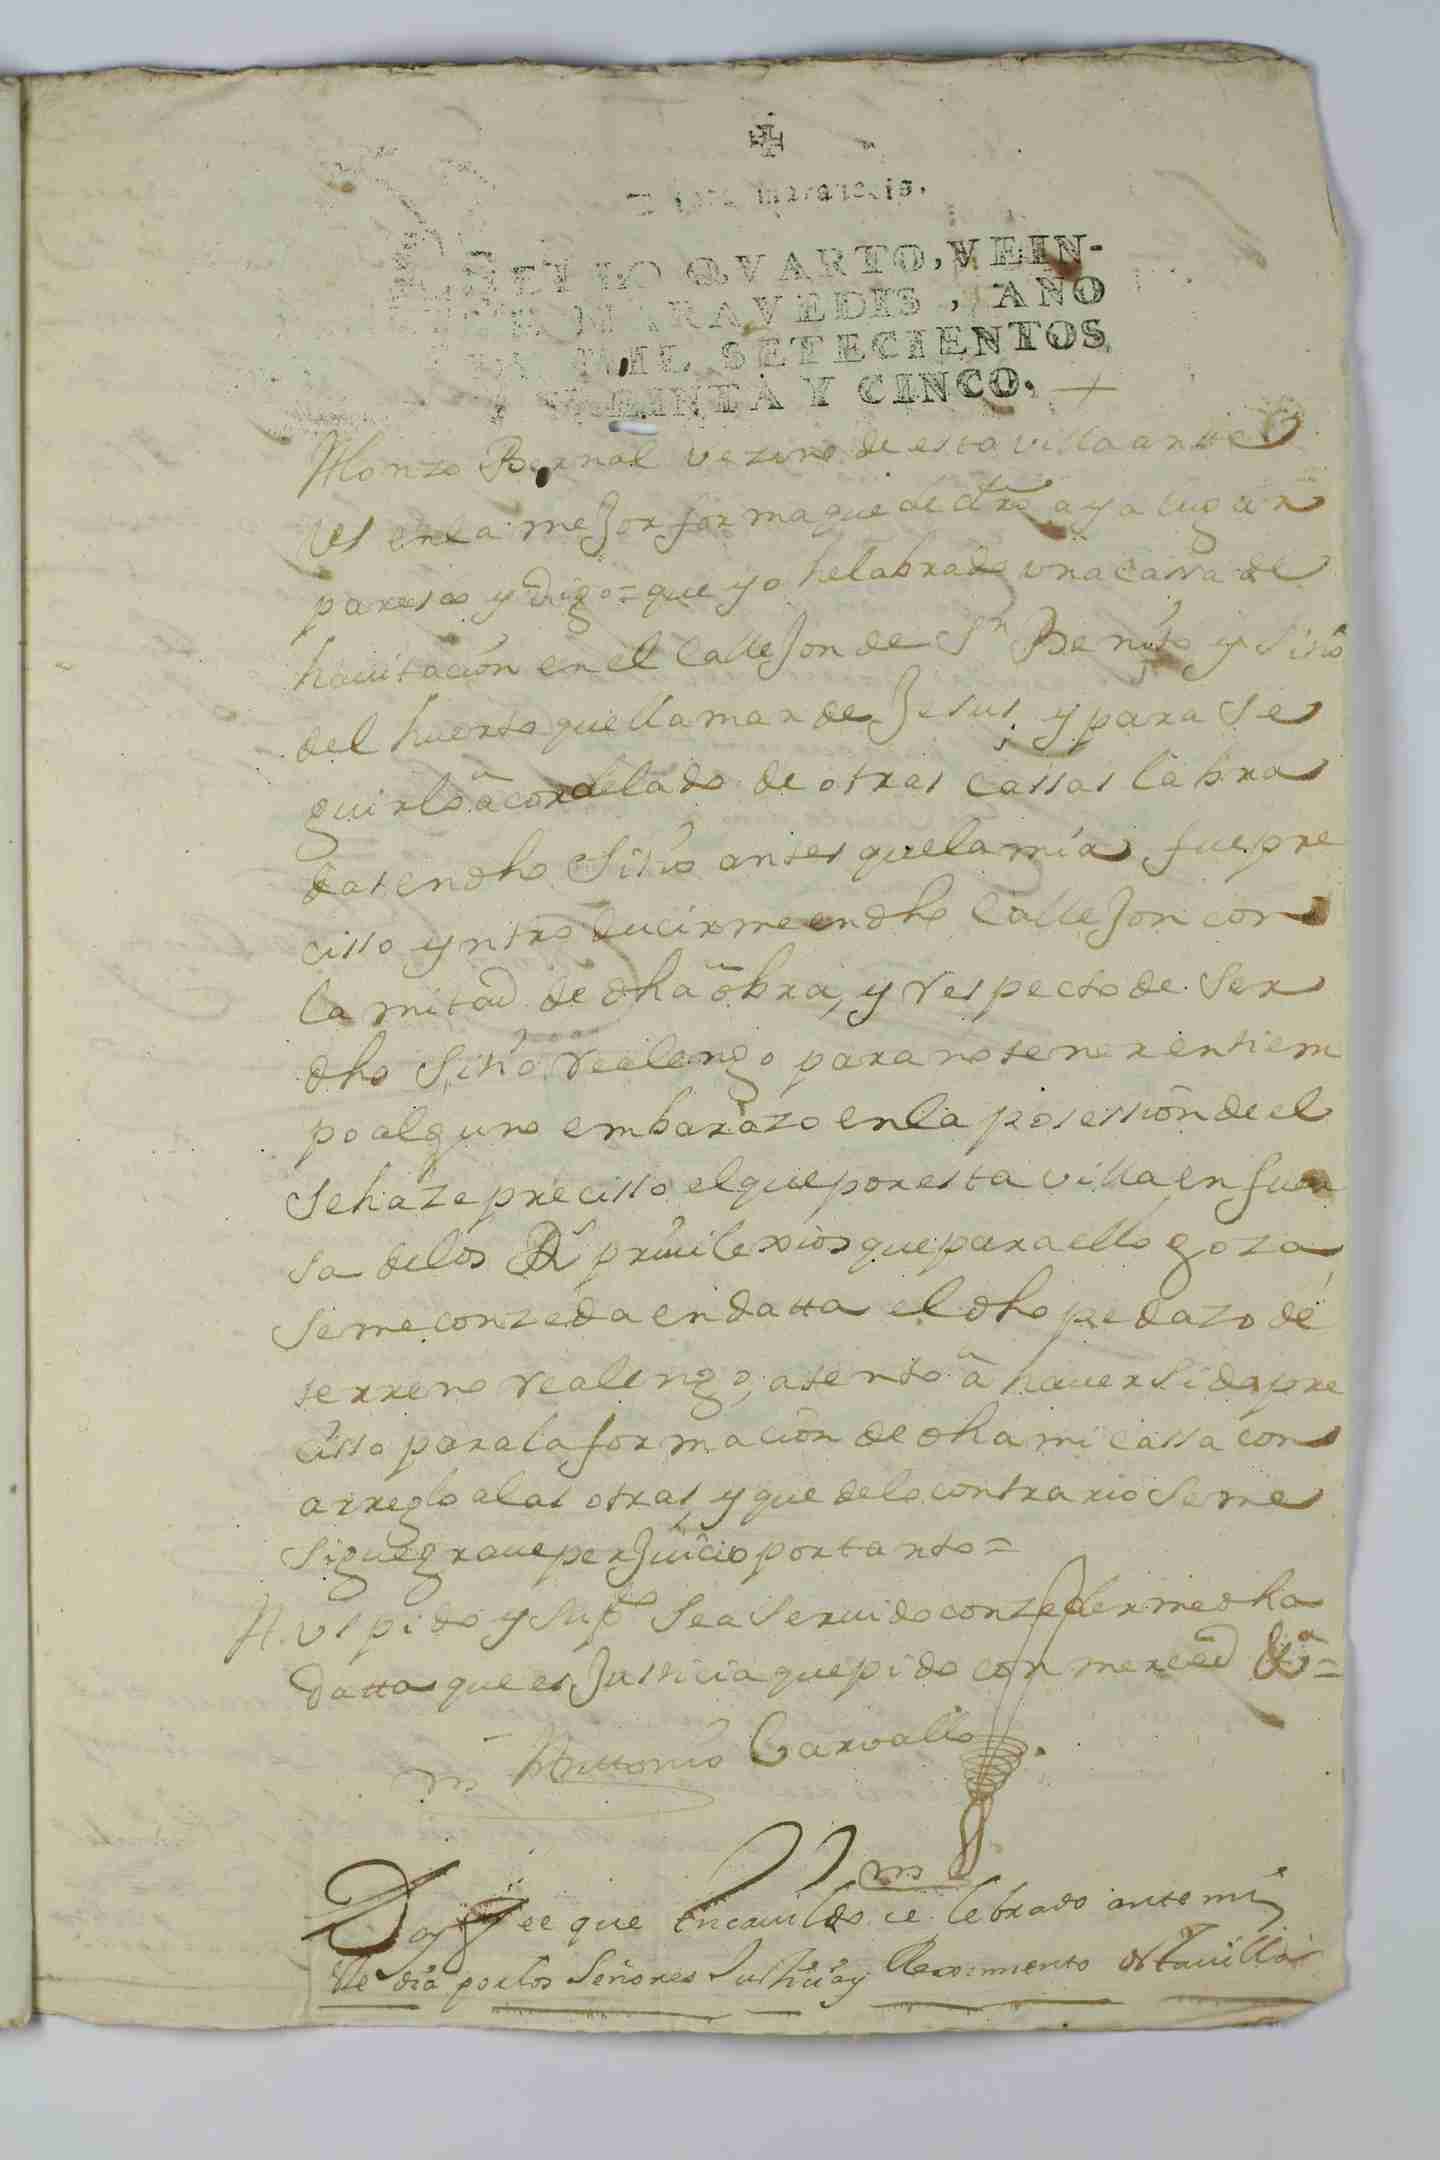 maravedis.
SELLO QVARTO, VEIN-
TE MARAVEDIS, AÑO
DE MIL SETECIENTOS
Y CINCO.
Alonzo Bernal vezino de esta villa antte
Vs en la mejor forma que de dro aya lugar
paresco y digo = que yo he labrado vna cassa de
hauitacion en el callejon de Sn Benito y sitio
del huerto que llaman de Jesus, y para se
guirlo a cordelado de otras cassas labra
das en dho sitio antes que la mia, fue pre
cisso yntroducirme en dho callejon con
la mitad de dha obra, y respecto de ser
dho sitio realengo para no tener en tiem
po alguno embarazo en la posession de el
se haze precisso el que por esta villa en fuer
sa de los Rs priuilexios que para ello goza
se me conzeda en datta el dho pedazo de
terreno realengo, atento a hauer sido pre
cisso para la formacion de dha mi cassa con
arreglo a las otras, y que de lo contrario se me
sigue graue perjuicio por tanto =
A Vs pido y supco sea seruido conzederme dha
datta que es Justicia que pido con merced &a =
Anttonio Carvallo
Doy fee que en cauildo celebrado ante mi
este dia por los Señores Justicia y Reximiento desta uilla